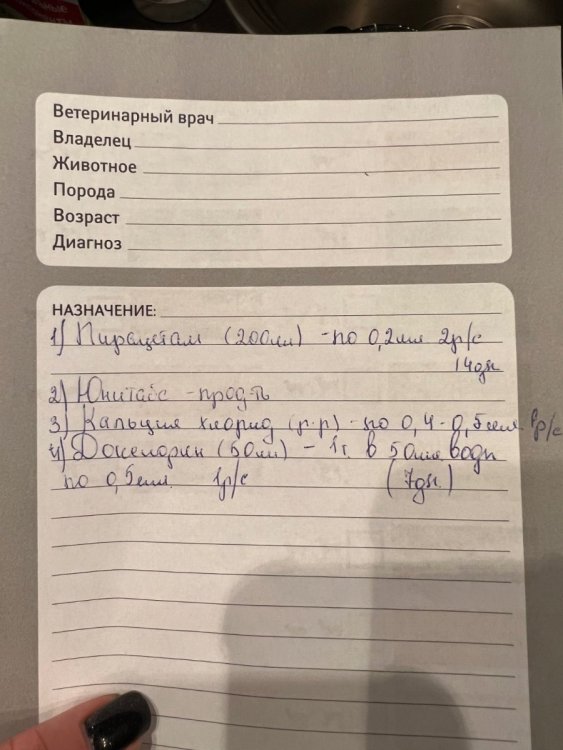 Ветеринарный врач
Владелец
Животное
Порода
Возраст
Диагноз
НАЗНАЧЕНИЕ:
1) Пирацетам (200мл) - по 0,2мл 2р/с
14дн
2) - прод-ть
3) Кальция хлорид (р-р) - по 0,4-0,5мл 1р/с
4) (50мл) - 1г. в 50мл воды
по 0,5мл 1р/с (7дн.)